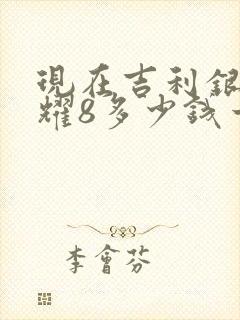 現在吉利銀
耀8多少錢
李會芬